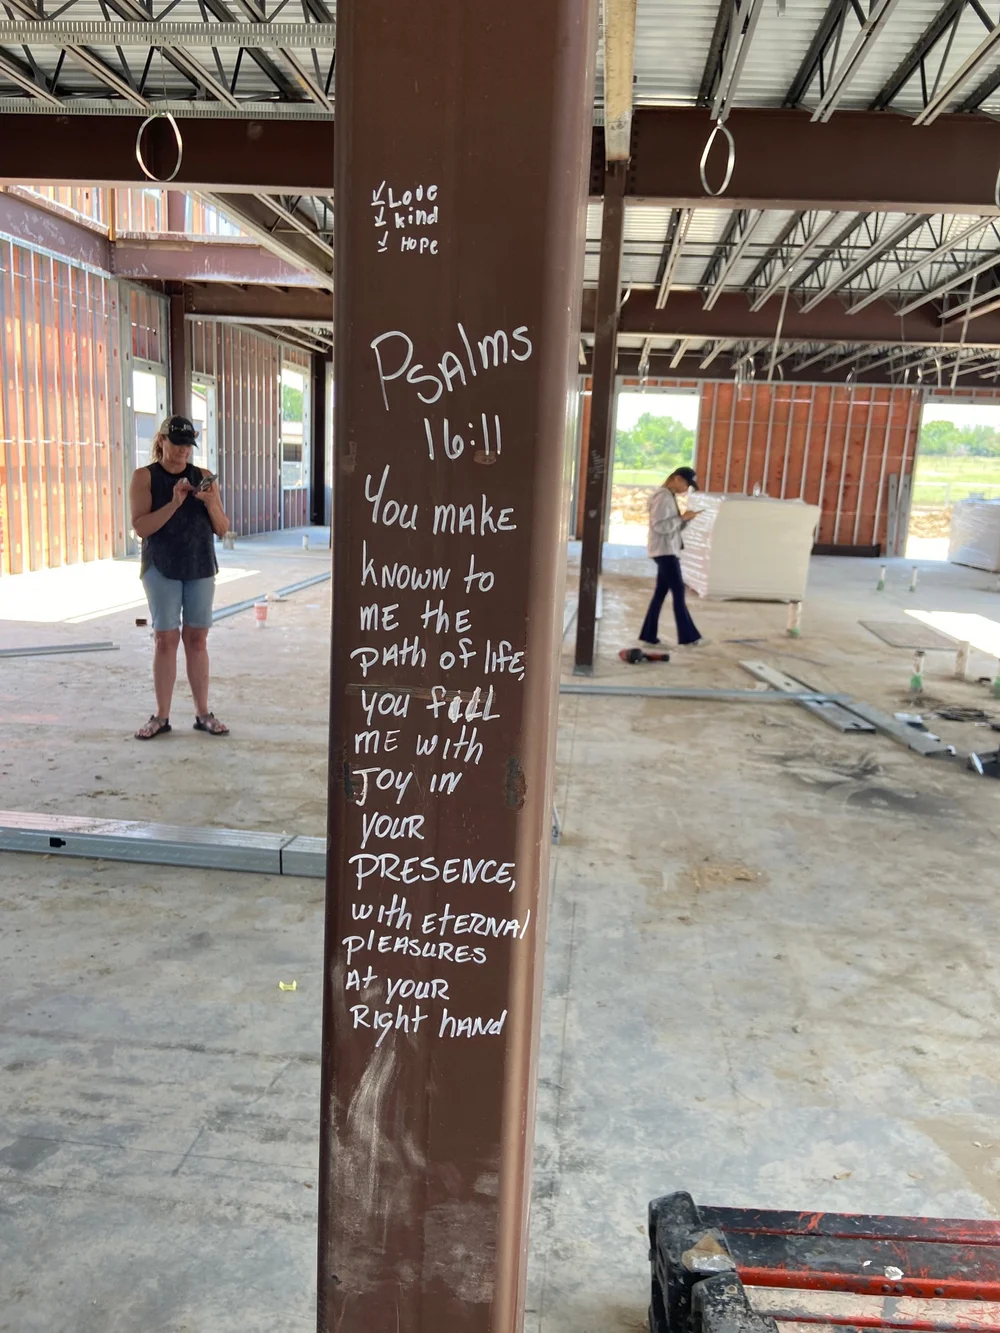 ✓ Love
✓ kind
✓ HOPE
PSAlms
16:11
You MAKE
KNOWN to
ME thE
pAth of lifE,
you fill
ME with
Joy iN
YOUR
PRESENCE,
with EtERNAl
plEASURES
At YOUR
Right hANd